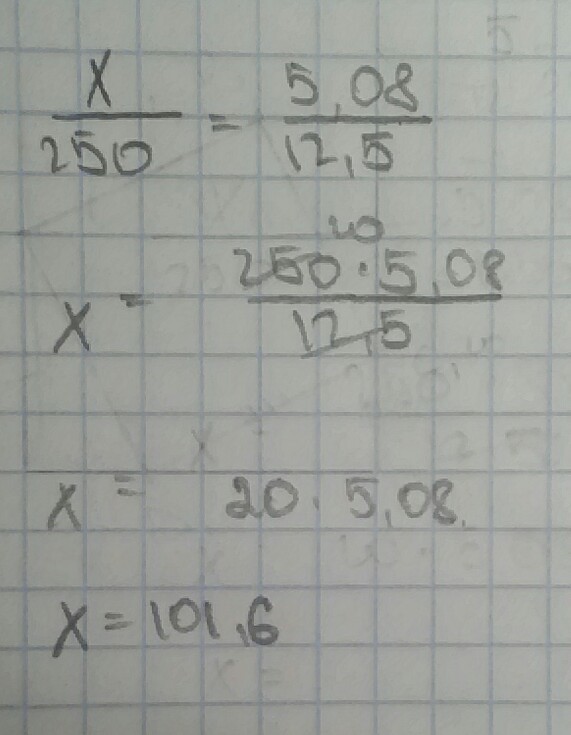 x/250 = 5,08/12,5
20
x = 250·5,08/12,5
x = 20·5,08
x = 101,6